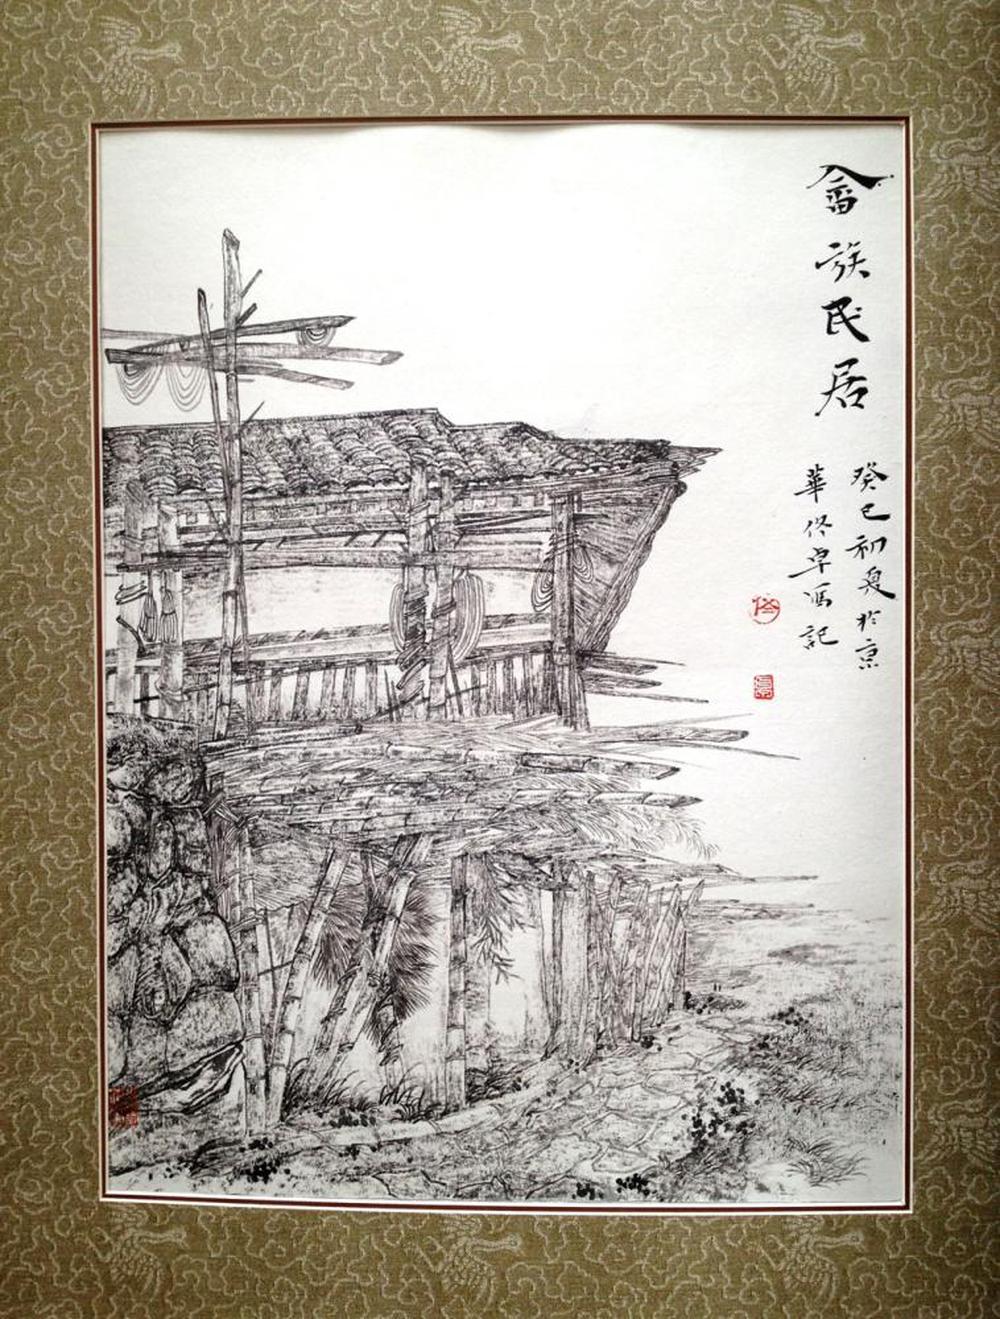 畲族民居
癸巳初夏於京
華佟卓写記
佟